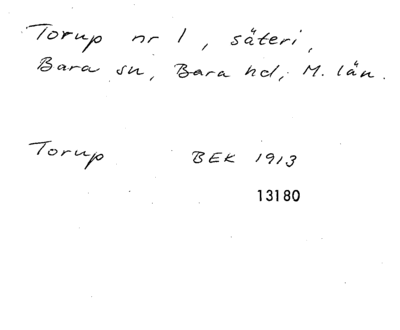 Torup nr 1, säteri,
Bara sn, Bara hd, M. län.
Torup BEK 1913
13180